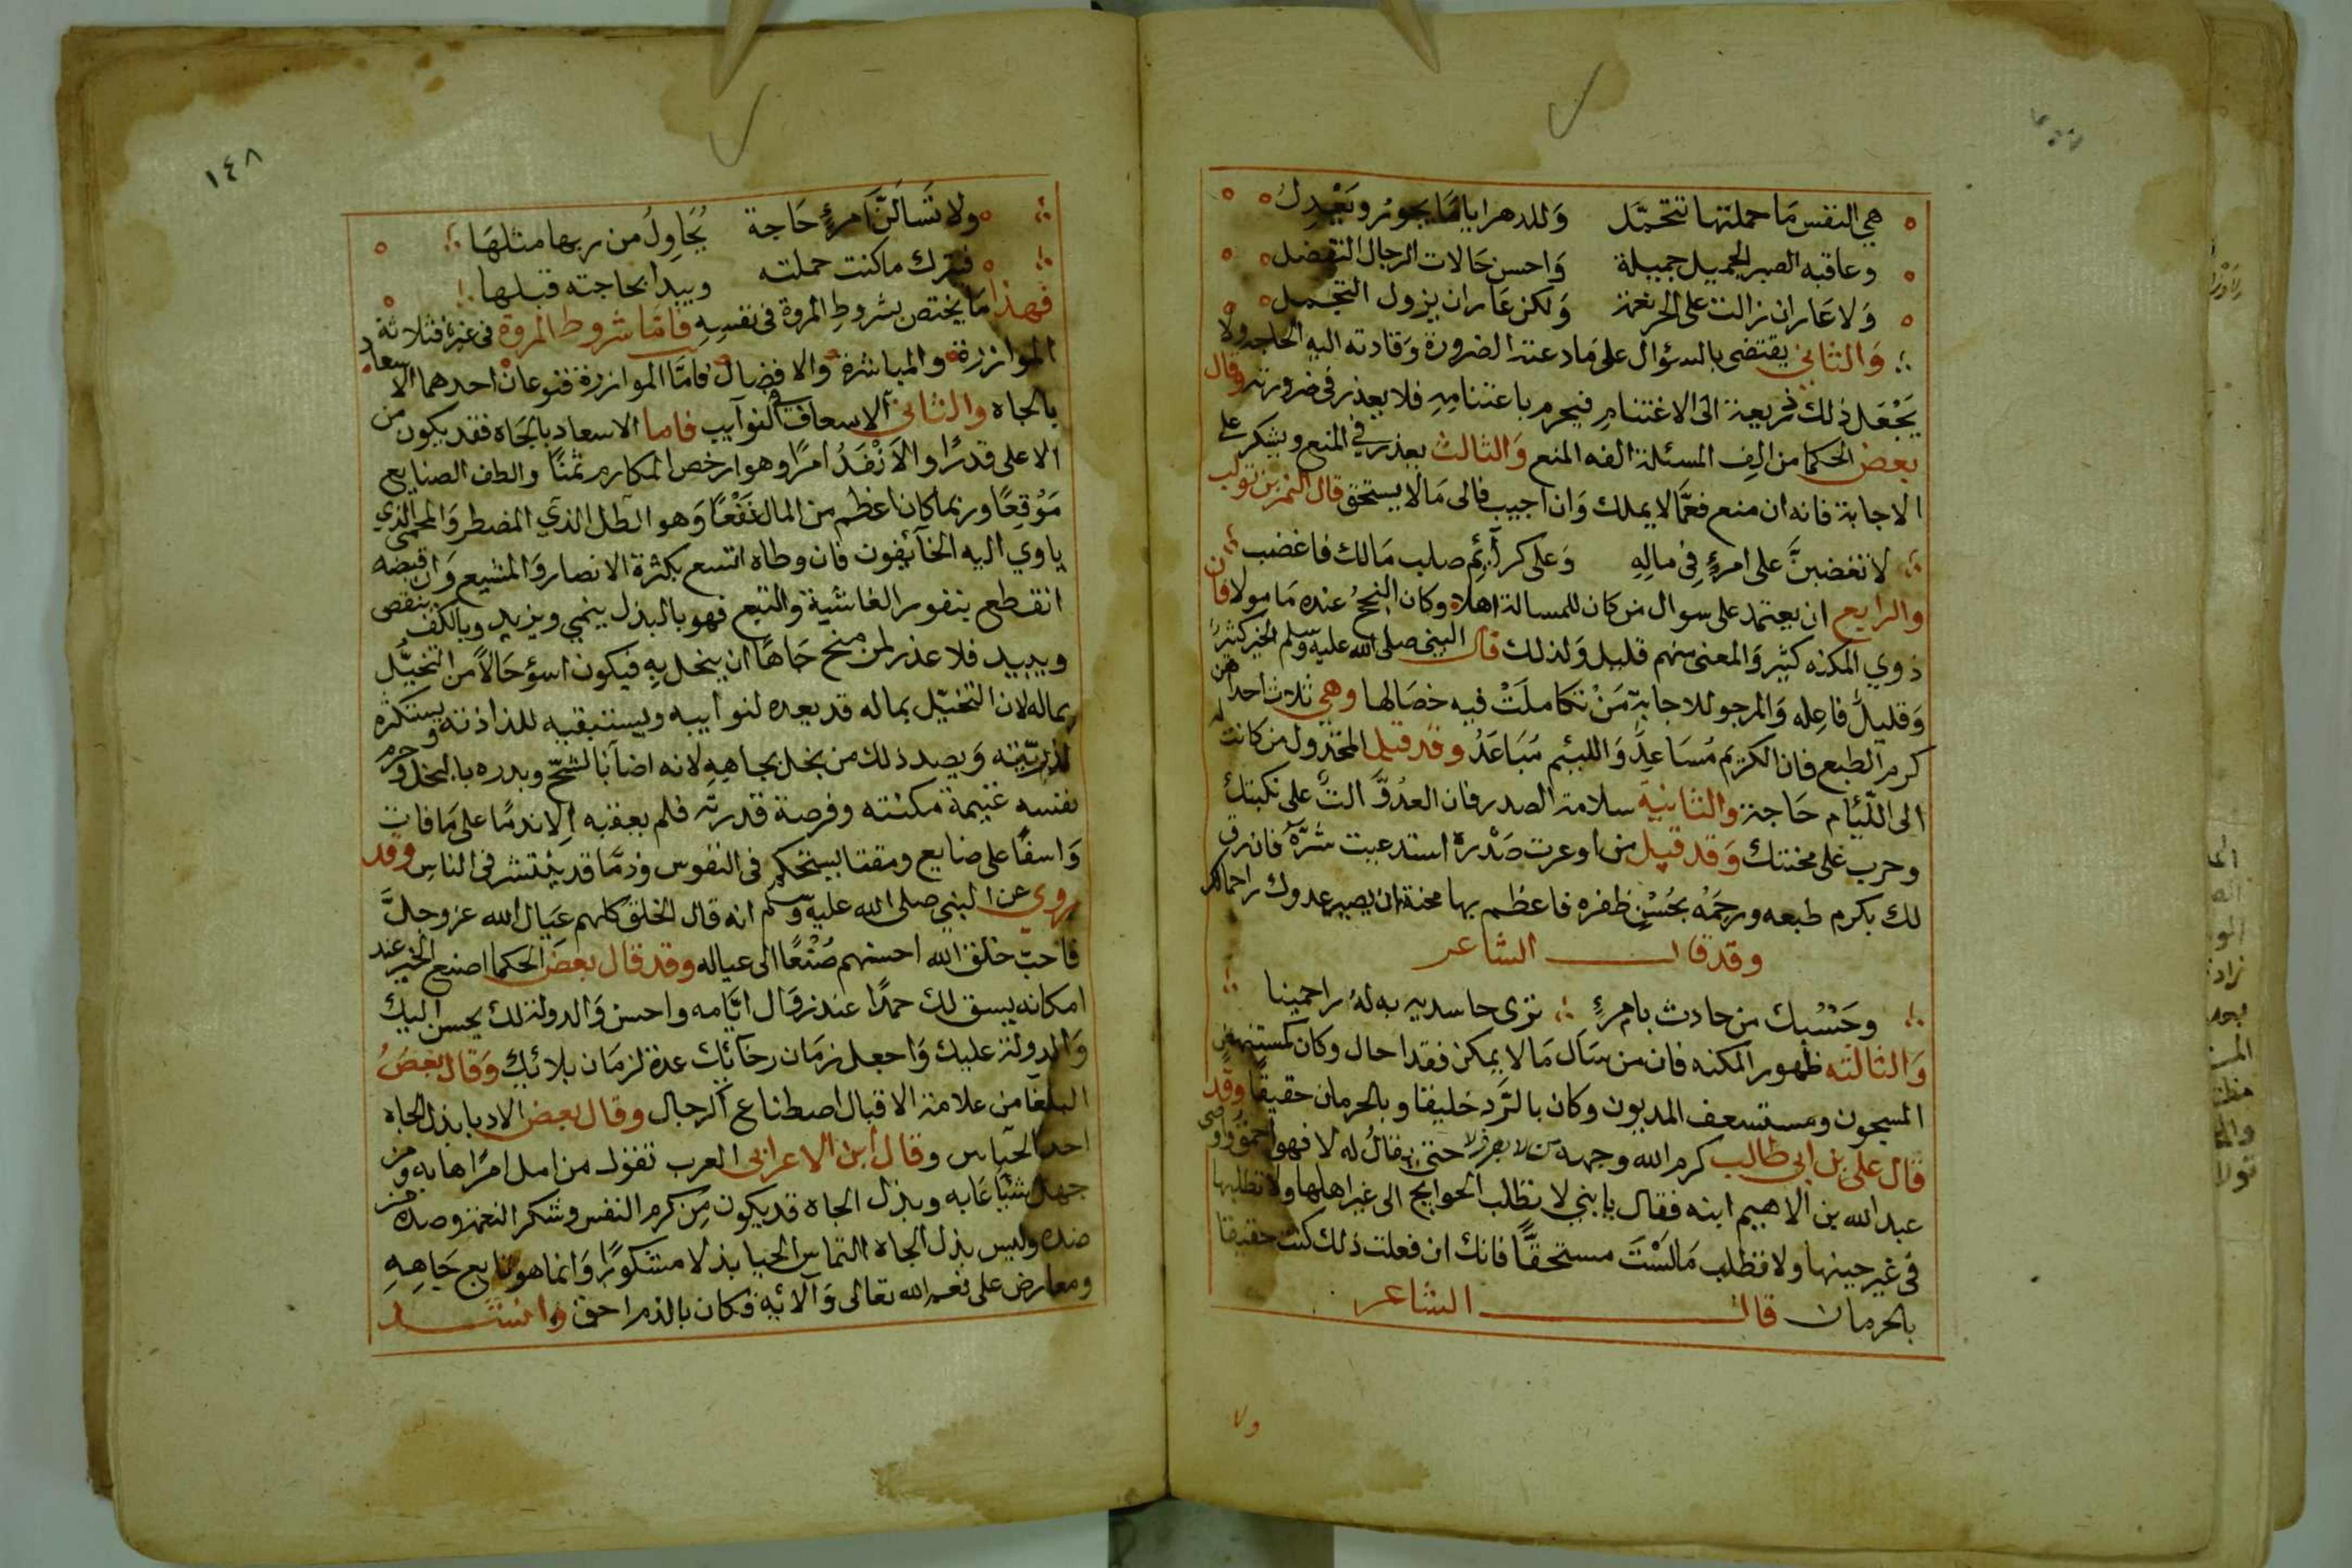 هي النفس مَا حملتها تتحمَّل وَللدهر ايامٌ تجور وتَعْدِلُ
وعاقبة الصبر الجميل جميلة وَاحسن حَالات الرجال التفضل
وَلا عَار ان زالت على الحر نعمة وَلكن عَار ان يزول التجمل
وَالثاني يقتضى بالسؤال على مَا دعته الضرورة وَقادته اليه الحاجة ولا
يَجْعَل ذلك ذريعة الى الاغتنام فيحرم باغتنامِهِ فلا يعذر في ضرورته وقال
بعض الحكما من الِف المسئلة الفه المنع وَالثالث يعذر في المنع ويشكر على
الاجابة فانه ان منع فعمَّا لا يملك وَان اجيب فالى مَا لا يستحق قال النمر بن تولب
لا تغضبنَّ على امرءٍ فِى مالِهِ وَعلى كرائم صلب مَالك فاغضب
والرابع ان يعتمد على سوال من كان للمسالة اهلا وكان النجحُ عنده مَامولا فان
ذوي المكنه كثير وَالمعنى منهم قليل وَلذلك قال النبي صلى الله عليه وسلم الخير كثيرٌ
وَقليلٌ فاعِله وَالمرجو للاجابة مَنْ تكاملَتْ فيه خصَالها وهي ثلاث احداهن
كرم الطبع فان الكريم مُسَاعِدٌ وَاللئيم مُبَاعَدٌ وقد قيل المخذول من كانت له
الى اللّئام حَاجة والثانية سلامة الصدر فان العدُوَّ البٌ على نكبتك
وحرب على محنتك وَقد قيل من اوعرت صَدْره استدعيت شَرَّهُ فان رق
لك بكرم طبعه ورحَمْهُ بحُسْنِ ظفره فاعظم بها محنة ان يصير عدوك راحما لك
وقد قال الشاعر
وحَسْبُك من حادث بامرءٍ ترى حاسديه به لهُ راحمينا
وَالثالثه ظهور المكنه فان من سَال مَا لا يمكن فقد احال وكان كمستنهض
المسجون ومستسعف المديون وكان بالرَّد خليقا وبالحرمان حقيقًا وقد
قال على بن ابي طالب كرم الله وجهه من لا يعرف لا حتى يقالُ له لا فهو احمقُ وَاوصى
عبد الله بن الاهيم ابنه فقال يا بني لا تطلب الحوايج الى غير اهلها ولا تطلبها
في غير حينها ولا تطلب مَا لَسْتَ مستحقًّا فانك ان فعلت ذلك كنت حقيقا
بالحرمان قال الشاعر
ولا
١٤٨
ولا تَسَالَنَّ امرءٍ حَاجة يُحَاوِلُ من ربها مثلهَا
فيترك ما كنت حملته ويبدا بحاجته قبلها
فهذا مَا يختص بشروطِ المروة فى نفسِهِ فامَّا شروط المروة في غيره فثلاثة
الموازرة والمياشرة والافضال فامَّا الموازرة فنوعان احدهما الاسعاد
بالجاه والثاني الاسعاف في النوآيب فاما الاسعاد بالجَاه فقد يكون من
الاعلى قدرًا والاَنْفَدُ امرًا وهو ارخص المكارم ثمنًا والطف الصنايع
مَوْقِعًا وربما كان اعظم من المال نَفْعًا وَهو الظل الذي المضطر وَالحمى الذي
ياوي اليه الخآئفون فان وطاه اتسع بكثرة الانصار وَالشيع وَان قبضه
انقطع بنفور الغاشية والتبع فهو بالبذل ينمي ويزيد وبالكف ينقص
ويبيد فلا عذر لمن منح جَاهًا ان يبخل بِهِ فيكون اسوؤ حَالاً من البخيل
بماله لان البخيل بماله قد يعده لنوايبه ويستبقيه للذاذته ويستكثره
لذرّيّته وَبضد ذلك من بخل بجاهِهِ لانه اضاعه بالشحّ وبدده بالبخل وحرم
نفسه غنيمة مكنته وفرصة قدرته فلم يعقبه اِلا ندمًا على مَا فات
وَاسفًا على ضايع ومقتا يستحكم فى النفوس وذمًّا قد ينتشر فى الناسِ وقد
روي عن النبي صلى الله عليه وسلم انه قال الخلق كلهم عيَال الله عز وجلَّ
فاحبّ خلق الله احسنهم صُنْعًا الى عياله وقد قال بعضَ الحكما اصنع الخير عند
امكانه يبق لك حمدًا عند زوَال ايَّامه واحسن وَالدولة لك يحسن اليك
وَالدولة عليك وَاجعل زمَان رخائِك عدة لزمَان بلائك وَقال بعضُ
البلغا من علامة الاقبال اصطناع الرجال وقال بعض الادبا بذل الجاه
احد الحبَاس وقال ابن الاعرابي العرب تقول من امل امرًا هابه ومن
جهل شيَّا عَابه وبذل الجاه قد يكون مِن كرم النفس وشكر النعمة وضده من
ضده وليس بذل الجاه التماس الجزا بذلا مشكورًا وَانما هو بايع جَاهِهِ
ومعارض على نعم الله تعالى وَآلائِهِ فكان بالذم احق وانشد